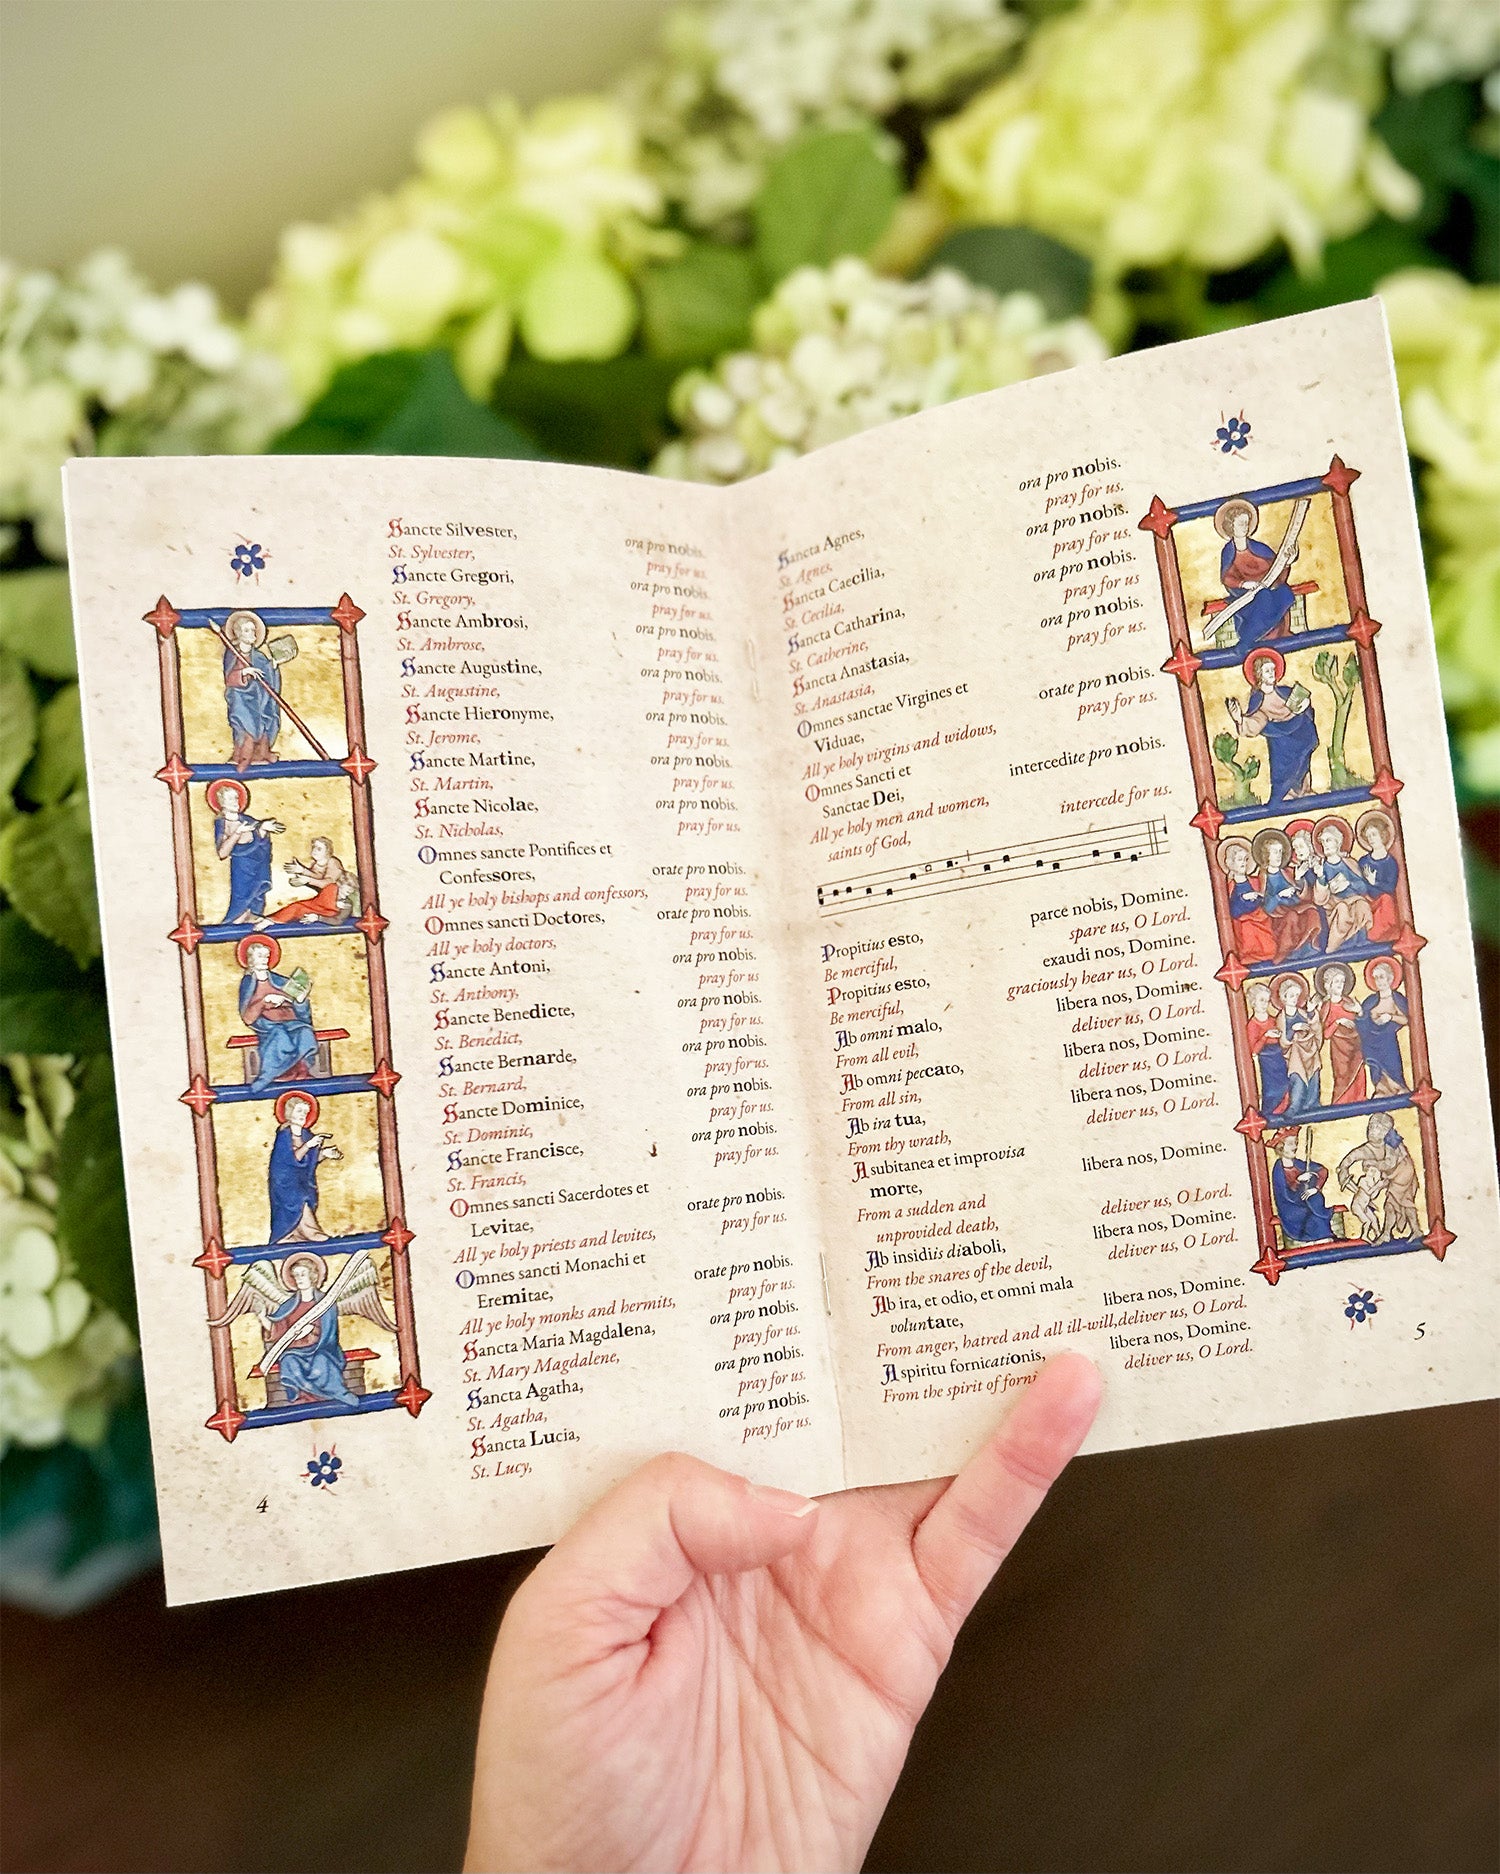 Sancte Silvester, ora pro nobis.
St. Sylvester, pray for us.
Sancte Gregori, ora pro nobis.
St. Gregory, pray for us.
Sancte Ambrosi, ora pro nobis.
St. Ambrose, pray for us.
Sancte Augustine, ora pro nobis.
St. Augustine, pray for us.
Sancte Hieronyme, ora pro nobis.
St. Jerome, pray for us.
Sancte Martine, ora pro nobis.
St. Martin, pray for us.
Sancte Nicolae, ora pro nobis.
St. Nicholas, pray for us.
Omnes sancte Pontifices et
Confessores, orate pro nobis.
All ye holy bishops and confessors, pray for us.
Omnes sancti Doctores, orate pro nobis.
All ye holy doctors, pray for us.
Sancte Antoni, ora pro nobis.
St. Anthony, pray for us
Sancte Benedicte, ora pro nobis.
St. Benedict, pray for us.
Sancte Bernarde, ora pro nobis.
St. Bernard, pray for us.
Sancte Dominice, ora pro nobis.
St. Dominic, pray for us.
Sancte Francisce, ora pro nobis.
St. Francis, pray for us.
Omnes sancti Sacerdotes et
Levitae, orate pro nobis.
All ye holy priests and levites, pray for us.
Omnes sancti Monachi et
Eremitae, orate pro nobis.
All ye holy monks and hermits, pray for us.
Sancta Maria Magdalena, ora pro nobis.
St. Mary Magdalene, pray for us.
Sancta Agatha, ora pro nobis.
St. Agatha, pray for us.
Sancta Lucia, ora pro nobis.
St. Lucy, pray for us.
4
Sancta Agnes, ora pro nobis.
St. Agnes, pray for us.
Sancta Caecilia, ora pro nobis.
St. Cecilia, pray for us.
Sancta Catharina, ora pro nobis.
St. Catherine, pray for us
Sancta Anastasia, ora pro nobis.
St. Anastasia, pray for us.
Omnes sanctae Virgines et
Viduae, orate pro nobis.
All ye holy virgins and widows, pray for us.
Omnes Sancti et
Sanctae Dei, intercedite pro nobis.
All ye holy men and women,
saints of God, intercede for us.
Propitius esto, parce nobis, Domine.
Be merciful, spare us, O Lord.
Propitius esto, exaudi nos, Domine.
Be merciful, graciously hear us, O Lord.
Ab omni malo, libera nos, Domine.
From all evil, deliver us, O Lord.
Ab omni peccato, libera nos, Domine.
From all sin, deliver us, O Lord.
Ab ira tua, libera nos, Domine.
From thy wrath, deliver us, O Lord.
A subitanea et improvisa
morte, libera nos, Domine.
From a sudden and
unprovided death, deliver us, O Lord.
Ab insidiis diaboli, libera nos, Domine.
From the snares of the devil, deliver us, O Lord.
Ab ira, et odio, et omni mala
voluntate, libera nos, Domine.
From anger, hatred and all ill-will, deliver us, O Lord.
A spiritu fornicationis, libera nos, Domine.
From the spirit of forni deliver us, O Lord.
5